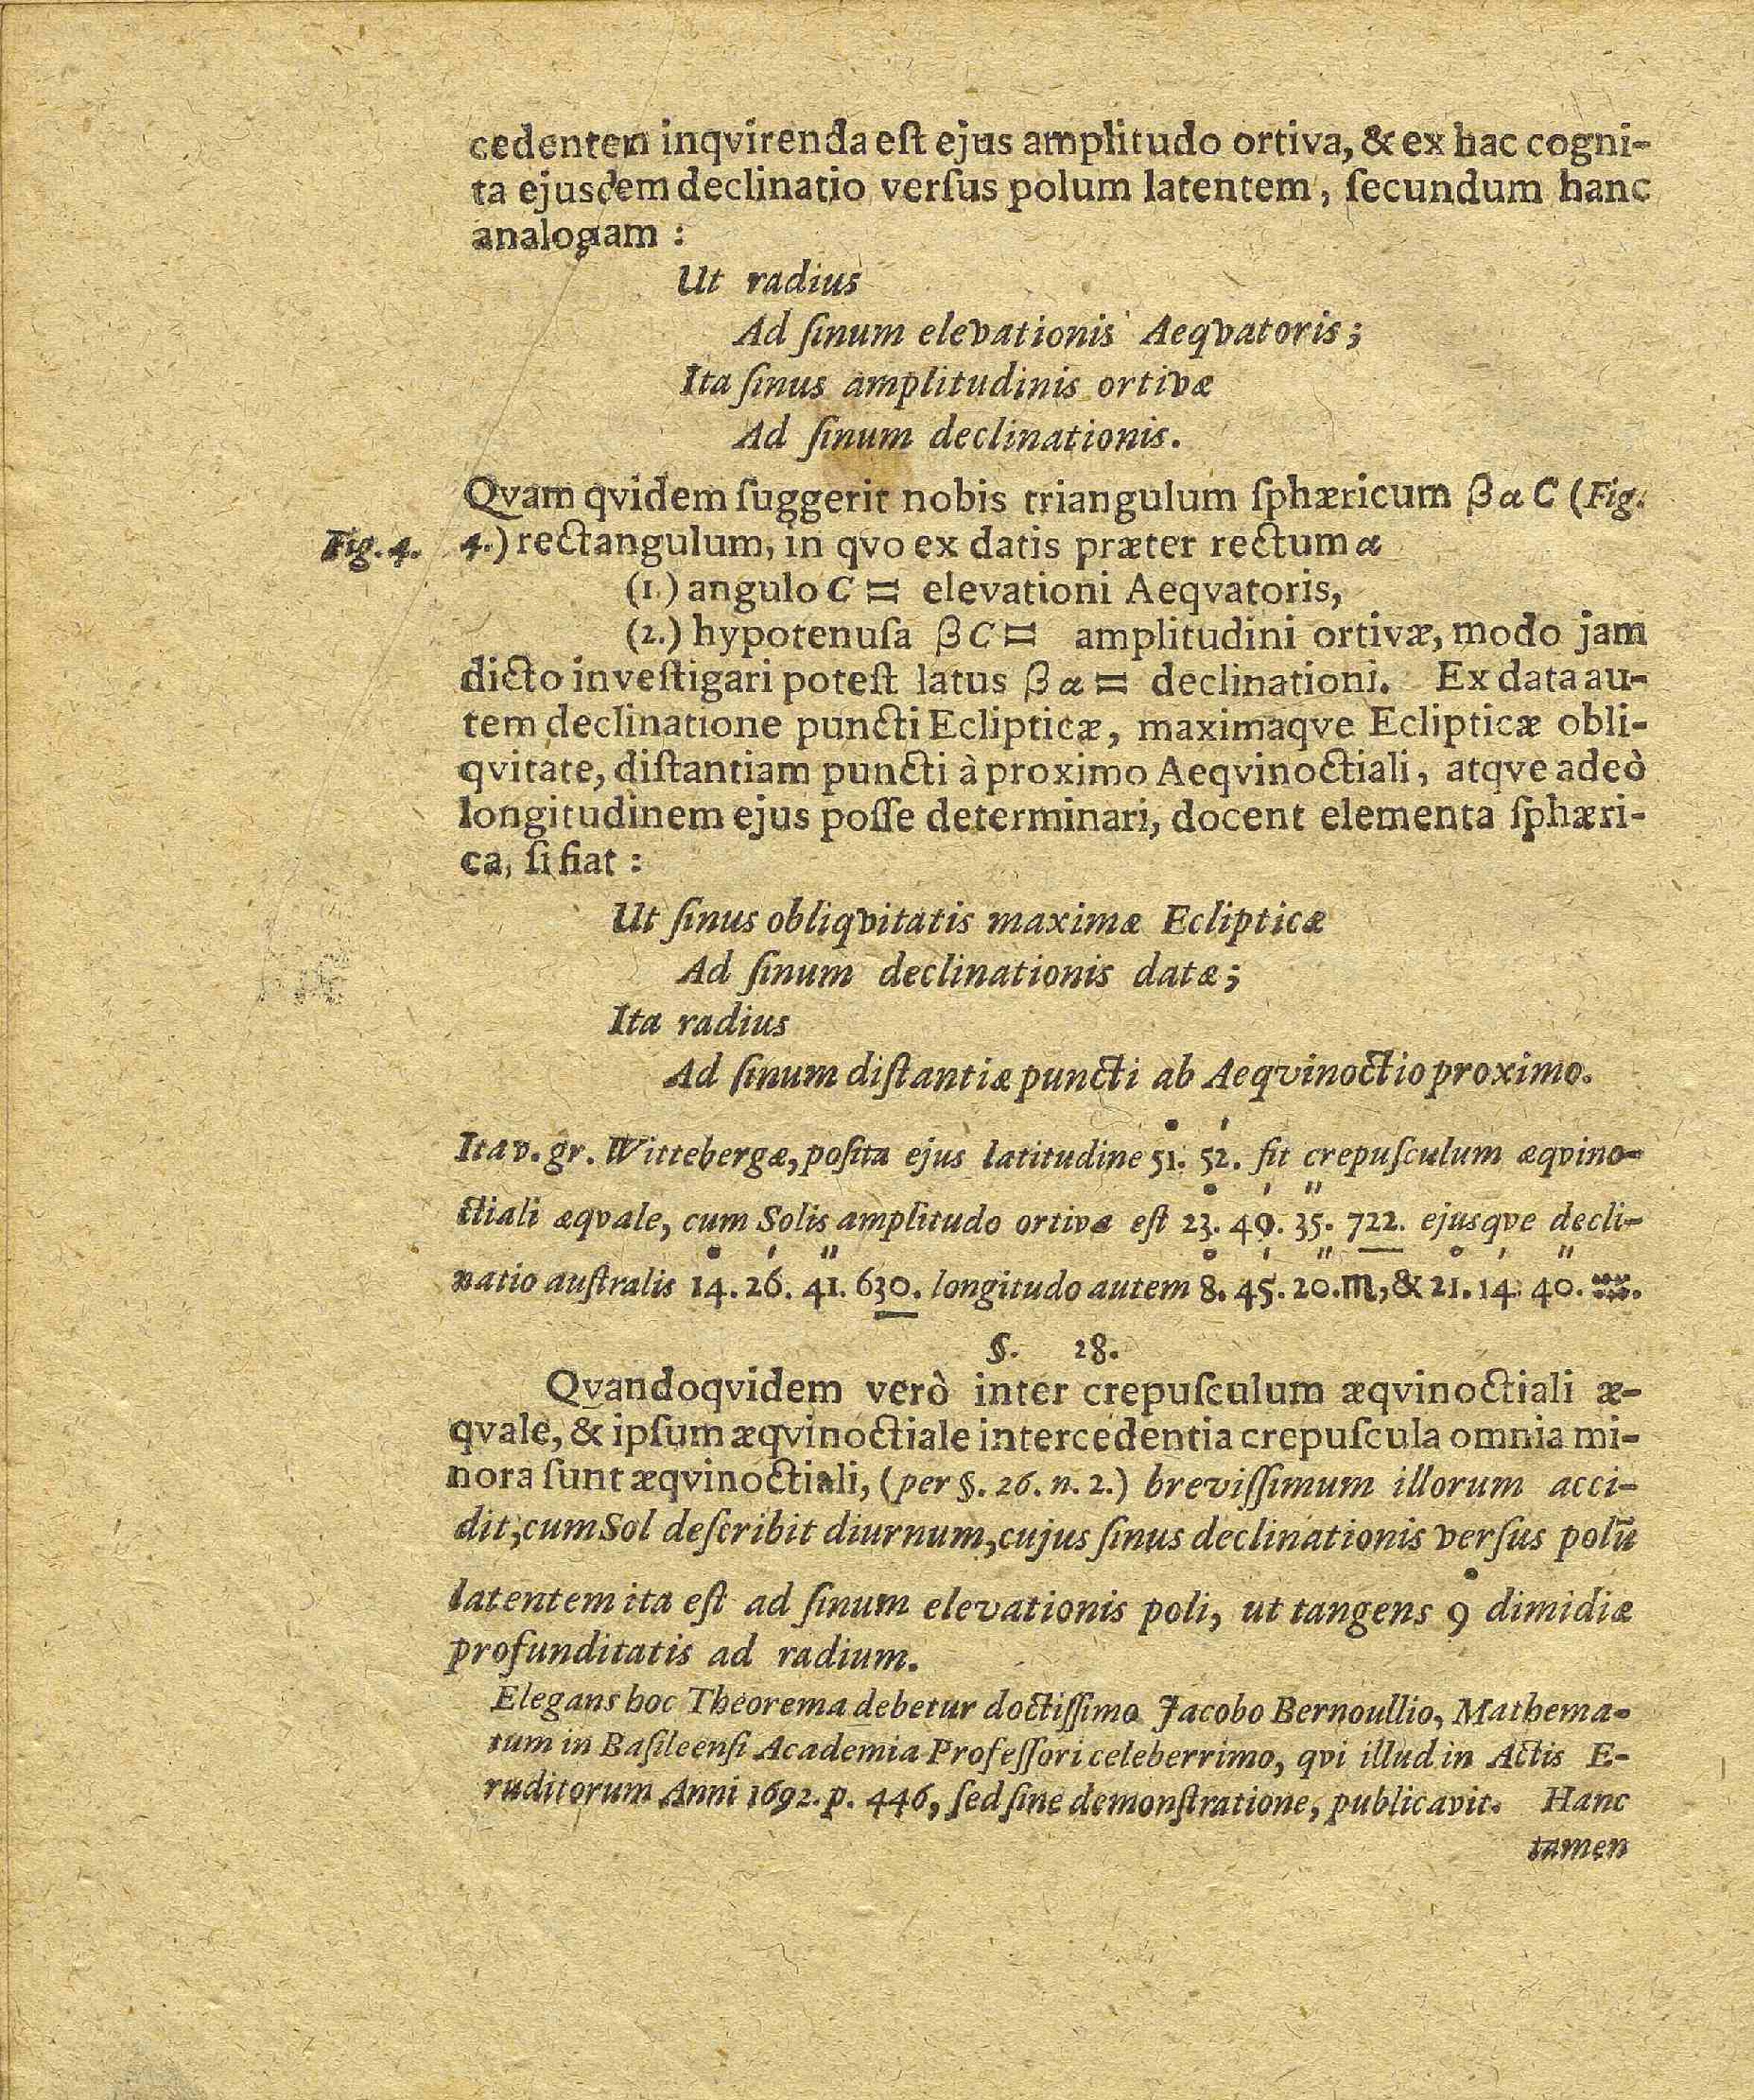 cedentem inqvirenda eſt ejus amplitudo ortiva, & ex hac cogni-
ta ejusdem declinatio verſus polum latentem, ſecundum hanc
analogiam :
Ut radius
Ad ſinum elevationis Aeqvatoris;
Ita ſinus amplitudinis ortivæ
Ad ſinum declinationis.
Qvam qvidem ſuggerit nobis triangulum ſphæricum β α C (Fig.
Fig. 4. 4.) rectangulum, in qvo ex datis præter rectum α
(1.) angulo C = elevationi Aeqvatoris,
(2.) hypotenuſa β C = amplitudini ortivæ, modo jam
dicto inveſtigari poteſt latus β α = declinationi. Ex data au-
tem declinatione puncti Eclipticæ, maximaqve Eclipticæ obli-
qvitate, diſtantiam puncti à proximo Aeqvinoctiali, atqve adeò
longitudinem ejus poſſe determinari, docent elementa ſphæri-
ca, ſi fiat :
Ut ſinus obliqvitatis maximæ Eclipticæ
Ad ſinum declinationis datæ;
Ita radius
Ad ſinum diſtantiæ puncti ab Aeqvinoctio proximo.
Ita v. gr. Wittebergæ, poſita ejus latitudine 51°. 52'. fit crepuſculum æqvino-
ctiali æqvale, cum Solis amplitudo ortiva eſt 23°. 49'. 35''. 722. ejusqve decli-
natio auſtralis 14°. 26'. 41''. 630. longitudo autem 8°. 45'. 20''. ♏, & 21°. 14'. 40''. ♒.
§. 28.
Qvandoqvidem verò inter crepuſculum æqvinoctiali æ-
qvale, & ipſum æqvinoctiale intercedentia crepuſcula omnia mi-
nora ſunt æqvinoctiali, (per §. 26. n. 2.) breviſſimum illorum acci-
dit, cum Sol deſcribit diurnum, cujus ſinus declinationis verſus polū
latentem ita eſt ad ſinum elevationis poli, ut tangens 9° dimidiæ
profunditatis ad radium.
Elegans hoc Theorema debetur doctiſſimo Jacobo Bernoullio, Mathema-
tum in Baſileenſi Academia Profeſſori celeberrimo, qvi illud in Actis E-
ruditorum Anni 1692. p. 446, ſed ſine demonſtratione, publicavit. Hanc
tamen